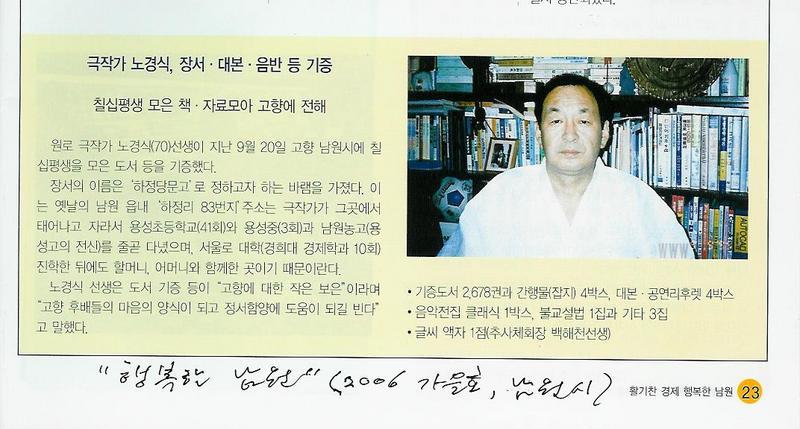 극작가 노경식, 장서·대본·음반 등 기증
칠십평생 모은 책·자료모아 고향에 전해
원로 극작가 노경식(70)선생이 지난 9월 20일 고향 남원시에 칠
십평생을 모은 도서 등을 기증했다.
장서의 이름은 '하정당문고'로 정하고자 하는 바램을 가졌다. 이
는 옛날의 남원 읍내 '하정리 83번지' 주소는 극작가가 그곳에서
태어나고 자라서 용성초등학교(41회)와 용성중(3회)과 남원농고(용
성고의 전신)를 줄곧 다녔으며, 서울로 대학(경희대 경제학과 10회)
진학한 뒤에도 할머니, 어머니와 함께한 곳이기 때문이란다.
노경식 선생은 도서 기증 등이 "고향에 대한 작은 보은"이라며
"고향 후배들의 마음의 양식이 되고 정서함양에 도움이 되길 빈다"
고 말했다.
WWW
• 기증도서 2,678권과 간행물(잡지) 4박스, 대본·공연리후렛 4박스
• 음악전집 클래식 1박스, 불교설법 1집과 기타 3집
• 글씨 액자 1점(추사체회장 백해천선생)
"행복한 남원" (2006 가을호, 남원시)
활기찬 경제 행복한 남원 23